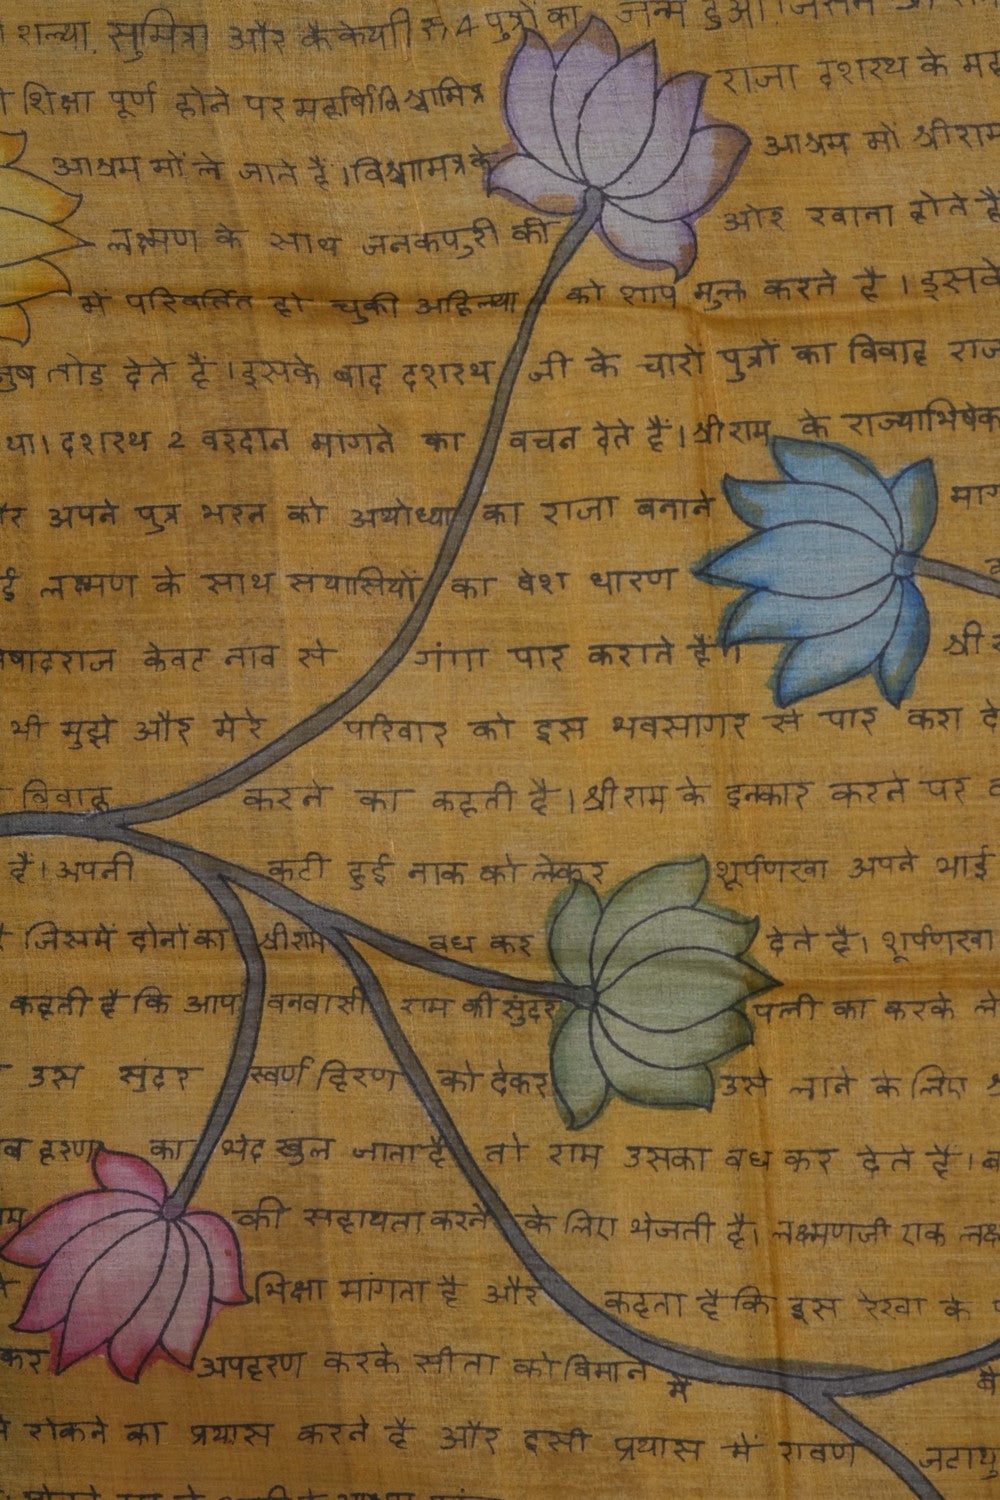 शल्या, सुमित्रा और कैकेयी से 4 पुत्रों का जन्म हुआ।
शिक्षा पूर्ण होने पर महर्षि विश्वामित्र राजा दशरथ के
आश्रम मों ले जाते है। विश्वाामत्र के आश्रम मों श्रीराम
लक्ष्मण के साथ जनकपुरी की ओर रवाना होते है
में परिवर्तित हो चुकी अहिल्या को शाप मुक्त करते है। इसके
तोड देते हैं। इसके बाद दशरथ जी के चारो पुत्रों का विवाह
था। दशरथ 2 वरदान मांगने का वचन देते हैं। श्रीराम के राज्याभिषेक
अपने पुत्र भरत को अयोध्या का राजा बनाने
लक्ष्मण के साथ सयासियों का वेश धारण
केवट नाव से गंगा पार कराते है। श्री
भी मुझे और मेरे परिवार को इस भवसागर से पार करा
विवाह करने का कहती है। श्रीराम के इन्कार करने पर
है। अपनी कटी हुई नाक को लेकर शूर्पणखा अपने भाई
जिसमें दोनों का श्रीराम वध कर देते है। शूर्पणखा
कहती है कि आप वनवासी राम की सुंदर पत्नी का करके
उस सुंदर स्वर्ण हिरण को देकर उसे लाने के लिए
हरण का भेद खुल जाता है तो राम उसका वध कर देते है।
की सहायता करने के लिए भेजती है। लक्ष्मणजी एक
भिक्षा मांगता है और कहता है कि इस रेखा के
कर अपहरण करके सीता को विमान में
रोकने का प्रयास करते है और इसी प्रयास में रावण जटायु